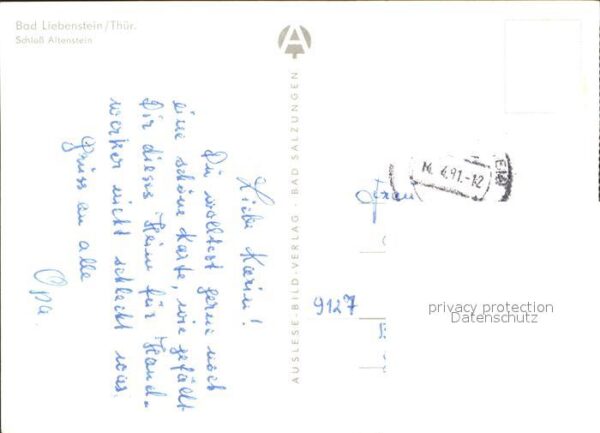 Bad Liebenstein/Thür.
Schloß Altenstein
Liebe Karin!
Du wolltest gerne noch
eine schöne Karte, wie gefällt
Dir dieses Heim für Hand-
werker nicht schlecht was.
Gruss an alle
Opa.
AUSLESE-BILD-VERLAG · BAD SALZUNGEN
4.91.-12
9127
privacy protection
Datenschutz